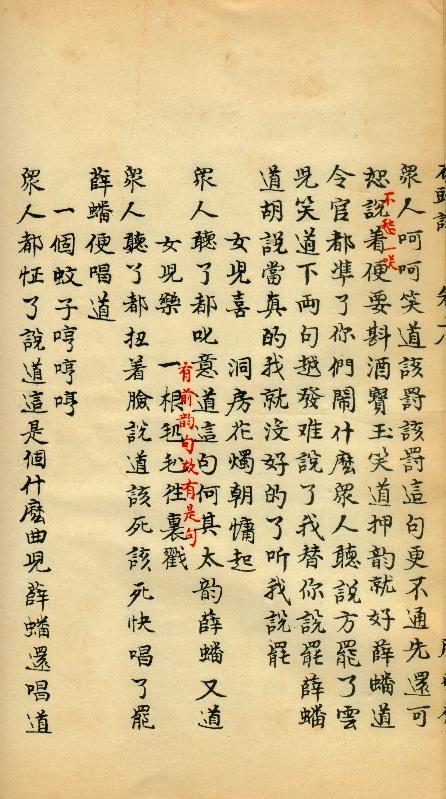 眾人呵呵笑道該罰該罰這句更不通先還可
恕說着便要斟酒寶玉笑道押韵就好薛蟠道
不愁一咲
令官都準了你們鬧什麽眾人聽說方罷了雲
児笑道下兩句越發难說了我替你說罷薛蟠
道胡說當真的我就没好的了听我說罷
女児喜 洞房花燭朝慵起
眾人聽了都叱意道這句何其太韵薛蟠又道
有前韵句故有是句
女児樂 一根往裏戳
眾人聽了都扭着臉說道該死該死快唱了罷
薛蟠便唱道
一個蚊子哼哼哼
眾人都怔了說道這是個什麽曲児薛蟠還唱道